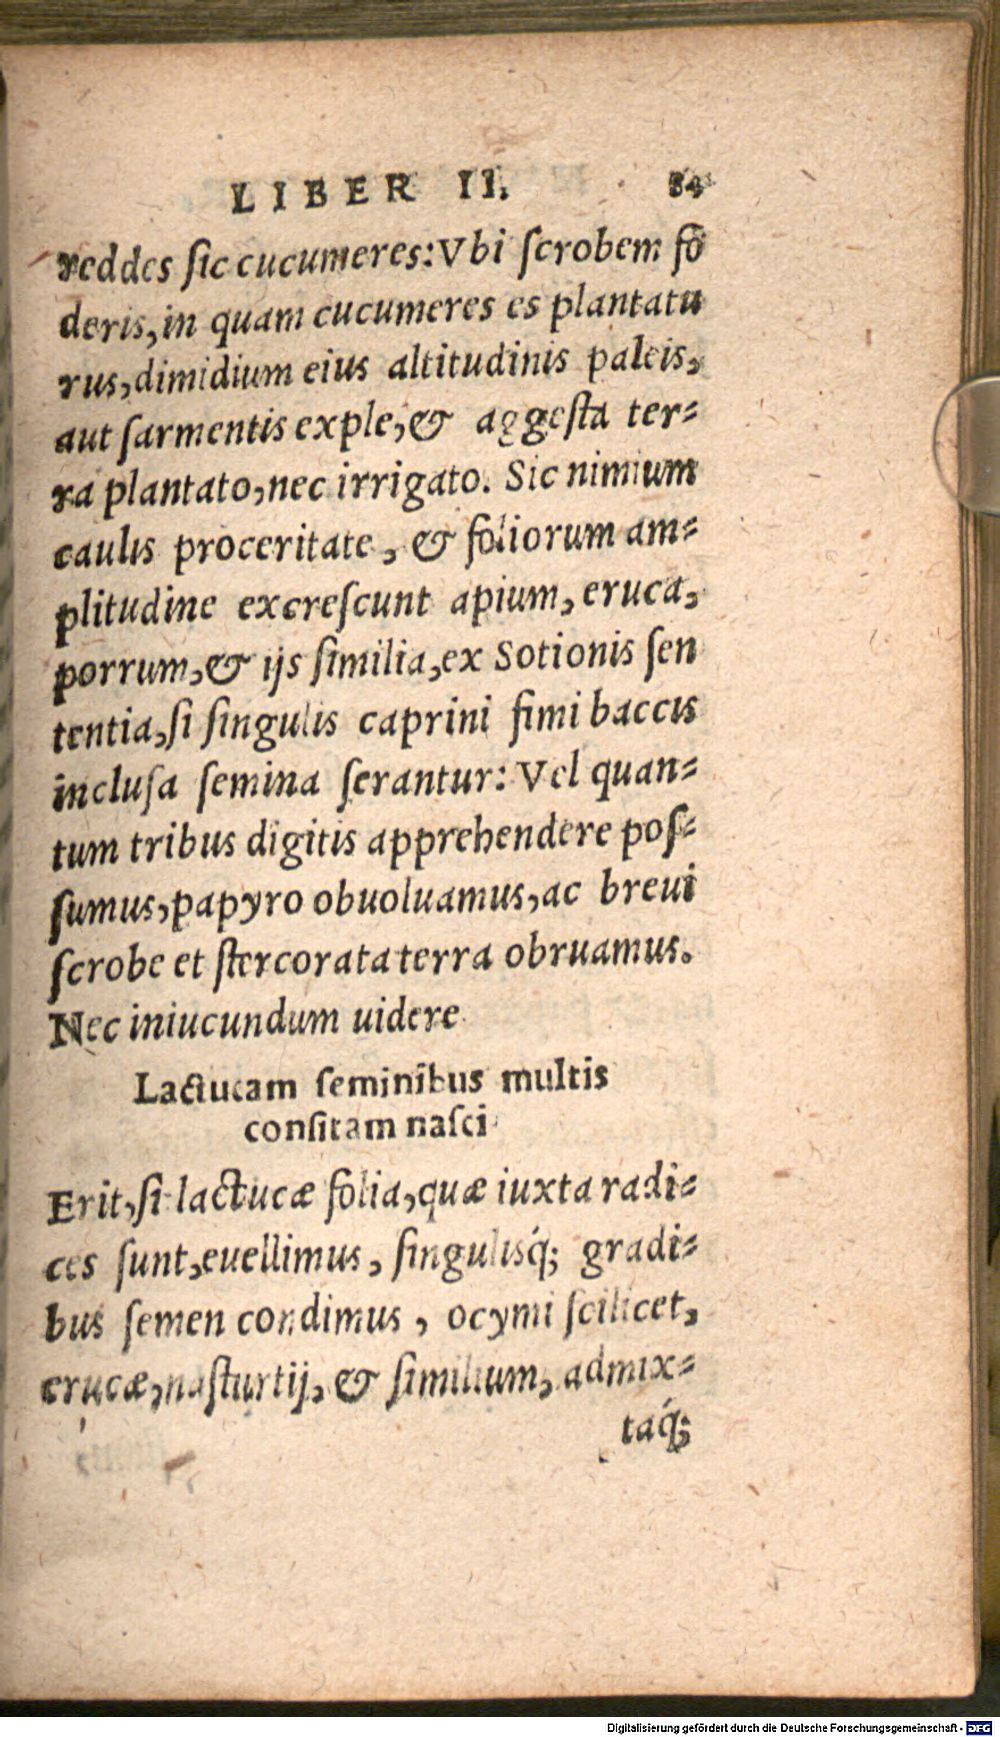 LIBER II. 84
reddes sic cucumeres: Vbi scrobem fō
deris, in quam cucumeres es plantatu
rus, dimidium eius altitudinis paleis,
aut sarmentis exple, & aggesta ter-
ra plantato, nec irrigato. Sic nimium
caulis proceritate, & foliorum am-
plitudine excrescunt apium, eruca,
porrum, & ijs similia, ex Sotionis sen
tentia, si singulis caprini fimi baccis
inclusa semina serantur: Vel quan-
tum tribus digitis apprehendere pos-
sumus, papyro obuoluamus, ac breui
scrobe et stercorata terra obruamus.
Nec iniucundum uidere
Lactucam seminibus multis
consitam nasci
Erit, si lactucæ folia, quæ iuxta radi-
ces sunt, euellimus, singulisq́; gradi-
bus semen condimus, ocymi scilicet,
erucæ, nasturtij, & similium, admix-
taq́;
Digitalisierung gefördert durch die Deutsche Forschungsgemeinschaft - DFG